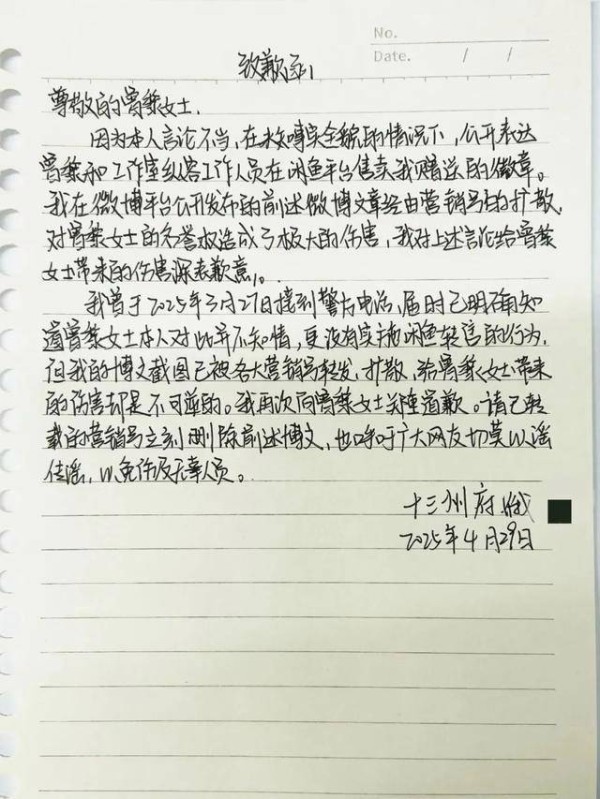 No.
Date. / /
致歉函
尊敬的曾黎女士:
因为本人言论不当,在未核实全貌的情况下,公开表达
曾黎和工作室纵容工作人员在闲鱼平台售卖我赠送的徽章。
我在微博平台公开发布的前述微博文章经由营销号的扩散,
对曾黎女士的名誉权造成了极大的伤害,我对上述言论给曾黎
女士带来的伤害深表歉意。
我曾于2025年3月27日接到警方电话,届时已明确知
道曾黎女士本人对此并不知情,更没有实施闲鱼转售的行为,
但我的博文截图已被各大营销号转发、扩散,给曾黎女士带来
的伤害却是不可逆的。我再次向曾黎女士郑重道歉。请已转
载的营销号立刻删除前述博文,也呼吁广大网友切莫以谣
传谣,以免伤及无辜人员。
十三州府
2025年4月29日